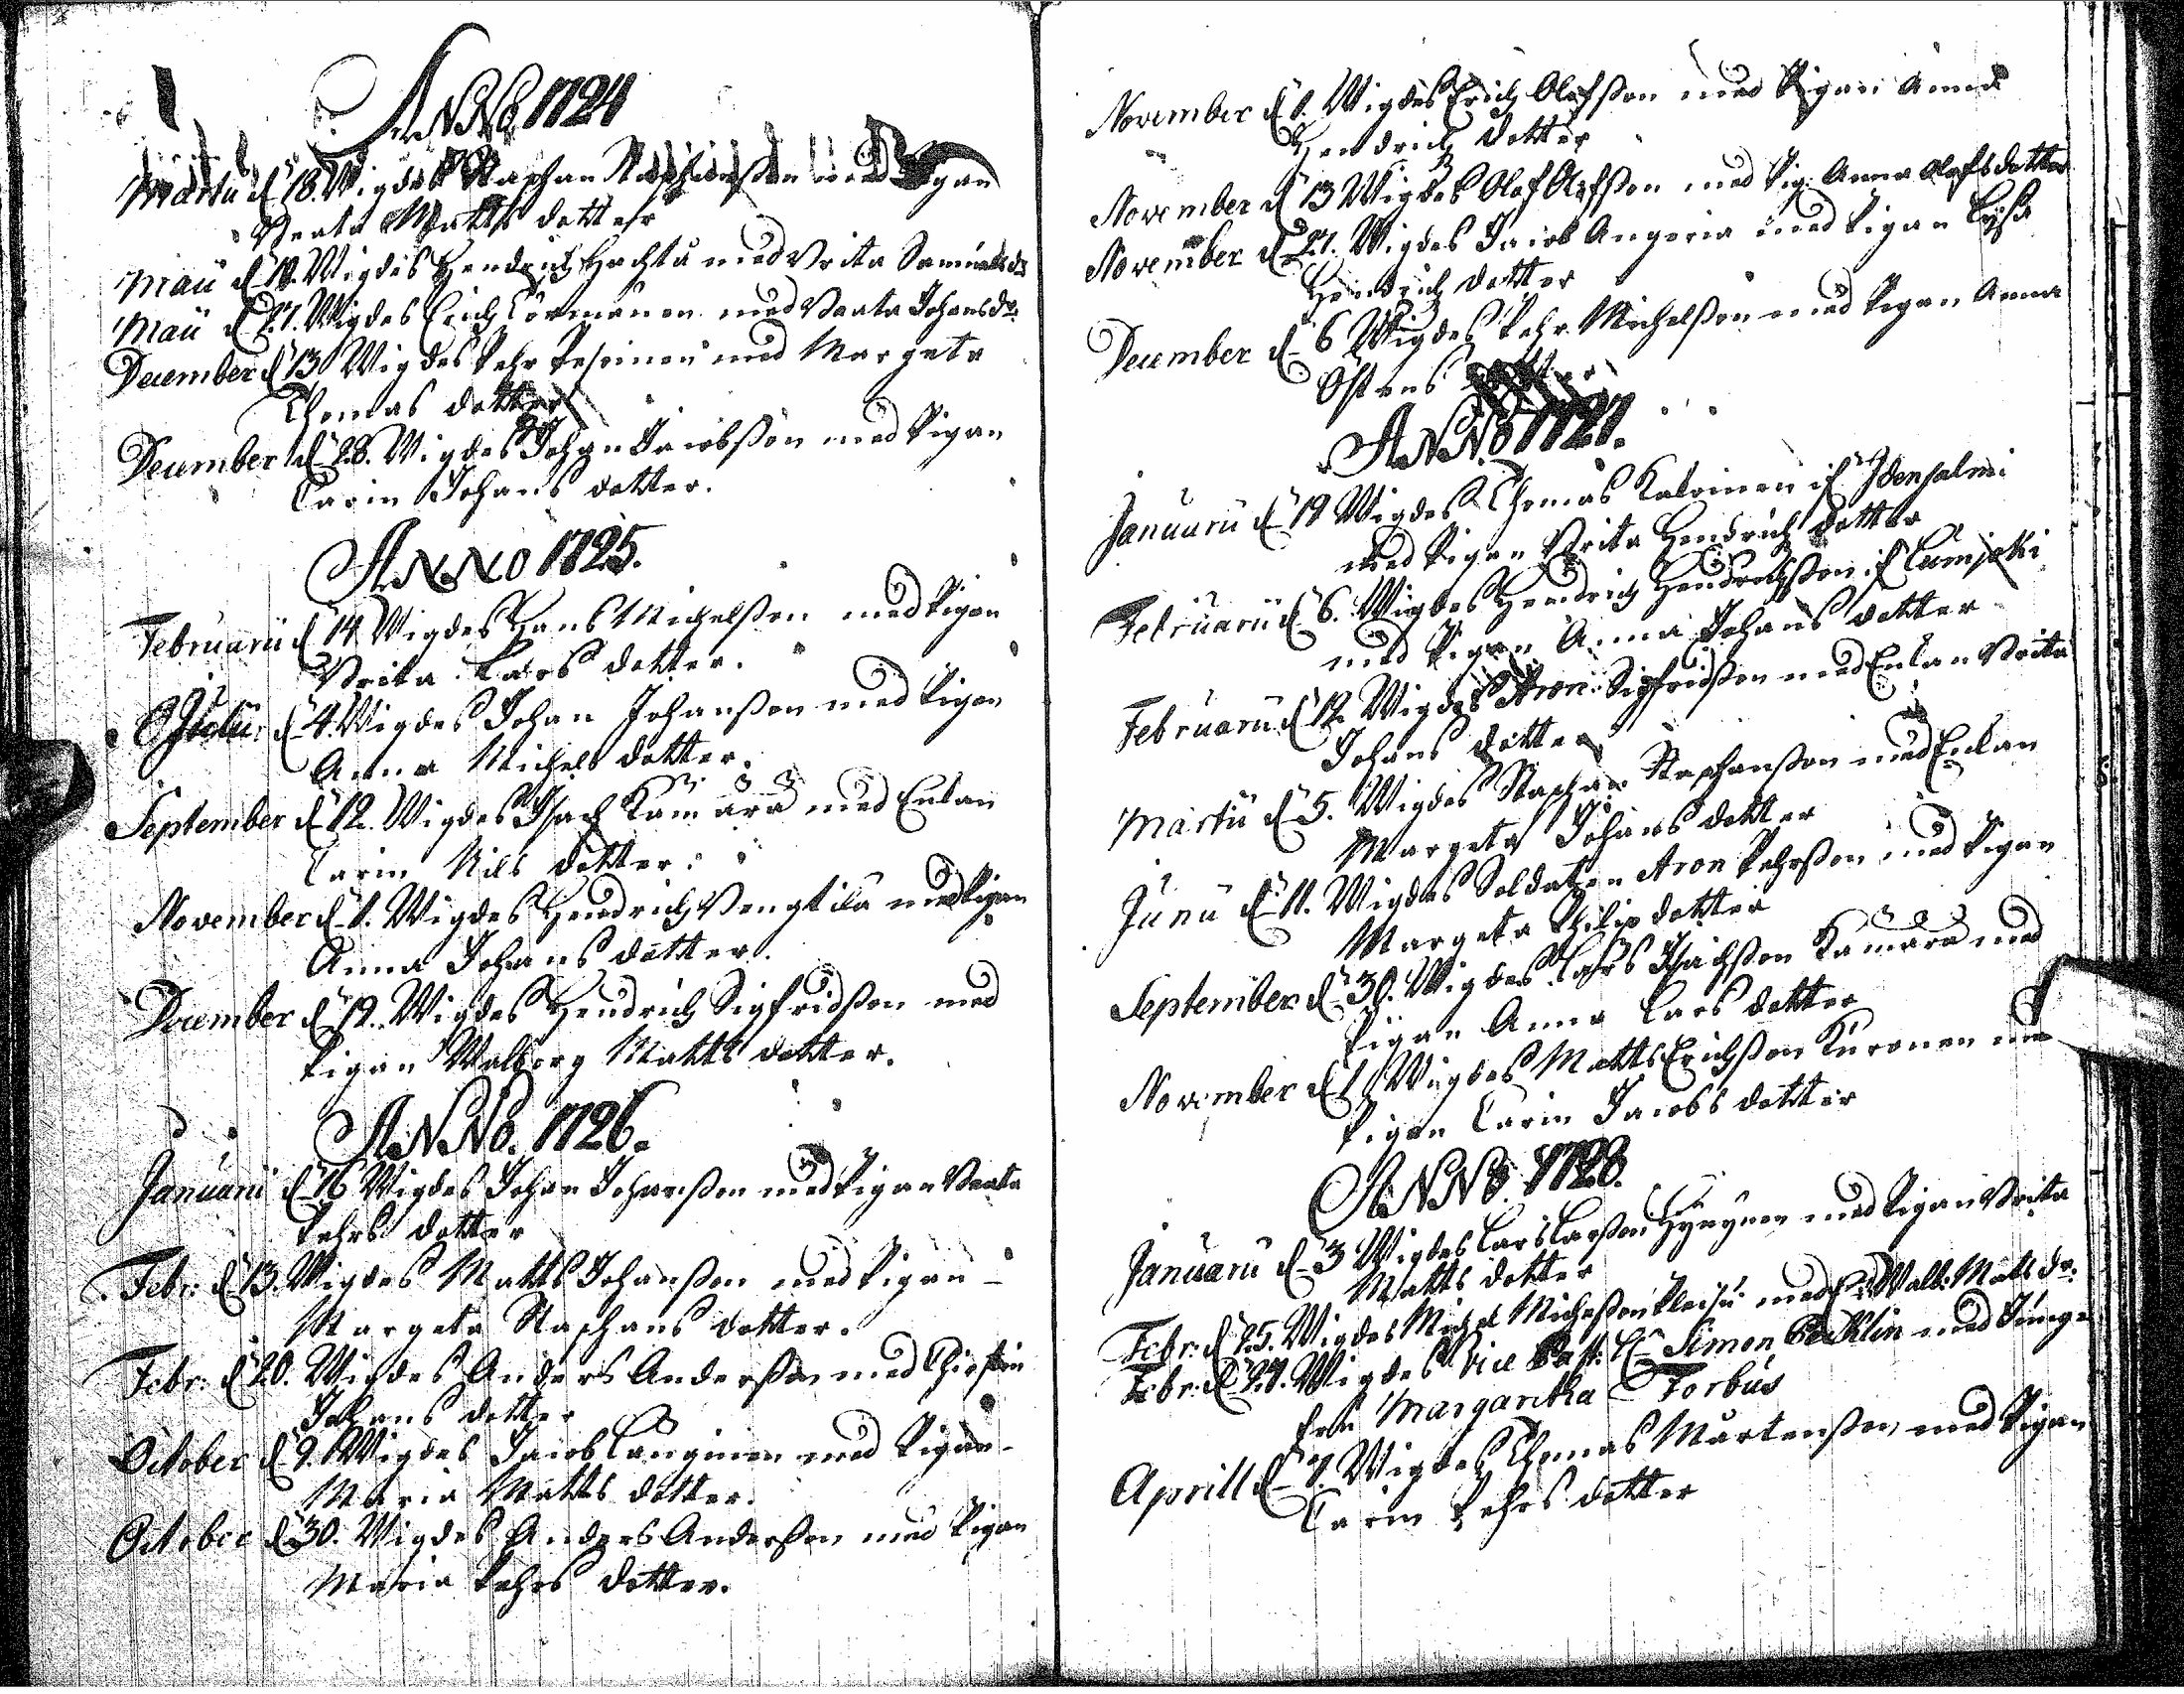 ANNO 1724
Martii d. 18. Wigdes Staphan Staphansson med Pigan
Beata Matts dotter
Maii d. Wigdes Hendrich Hachtu med Brita Samuels dr
Maii d. 27. Wigdes Erich Törmänen med Beata Johans dr.
December d. 13 Wigdes Pehr Pesoinen med Margeta
Thomas dotter
December d. 28. Wigdes Johan Jacobsson med Pigan
Carin Johans dotter.
ANNO 1725.
Februarii d. 14 Wigdes Hans Michelsson med Pigan
Brita Lars dotter.
Julii d. 4. Wigdes Johan Johansson med Pigan
Anna Michels dotter.
September d. 12. Wigdes Isach Kämäräs med Enkan
Carin Nils dotter.
November d. 1. Wigdes Hendrich med Pigan
Anna Johans dotter.
December d. 12. Wigdes Hendrich Sigfridsson med
Pigan Walborg Matts dotter.
ANNO. 1726.
Januarii d. 16 Wigdes Johan Johansson med Pigan Beata
Pehrs dotter
Febr: d. 13. Wigdes Matts Johansson med Pigan
Margeta Staphans dotter.
Febr: d. 20. Wigdes Anders Andersson med Chirstin
Johans dotter
October d. 9. Wigdes Jacob Länginen med Pigan
Maria Matts dotter.
October d. 30. Wigdes Anders Andersson med Pigan
Maria Pehrs dotter.
November d. 1. Wigdes Erich Olofsson med Pigan Anna
Hendrich dotter
November d. 13 Wigdes Olof Olofsson med Pig: Anna Olofs dotter
November d. 27. Wigdes Jacob Angeria med Pigan Lisa
Hendrich dotter
December d. 6 Wigdes Pehr Michelsson med Pigan Anna
Östens dotter
ANNO 1727.
Januarii d. 19 Wigdes Thomas if Idensalmi
med Pigan Brita Hendrich dotter
Februarii d. 6. Wigdes Hendrich Hendrichsson if Cumjoki
med Pigan Anna Johans dotter
Februarii d. 12 Wigdes Aron Sigfridsson med Enkan Brita
Johans dotter
Martii d. 5. Wigdes Staphan Staphansson med Enkan
Margeta Johans dotter
Junii d. 11. Wigdes Soldaten Aron Pehrsson med Pigan
Margeta Philip dotter
September d. 30. Wigdes Lars Isachsson Kämäräs med
Pigan Anna Lars dotter
November d. 1 Wigdes Matts Erichsson Kuronen med
Pigan Carin Jacobs dotter
ANNO. 1728.
Januarii d. 3 Wigdes Lars Larsson Hyrynen med Pigan Brita
Matts dotter
Febr: d. 25. Wigdes Michel Michelsson med E: Walb: Mats dr:
Febr: d. 27. Wigdes Vice Past: Simon med Junge
fru Margaretha Forbus
Aprill d. 1. Wigdes Thomas Mårtensson med Pigan
Carin Pehrs dotter